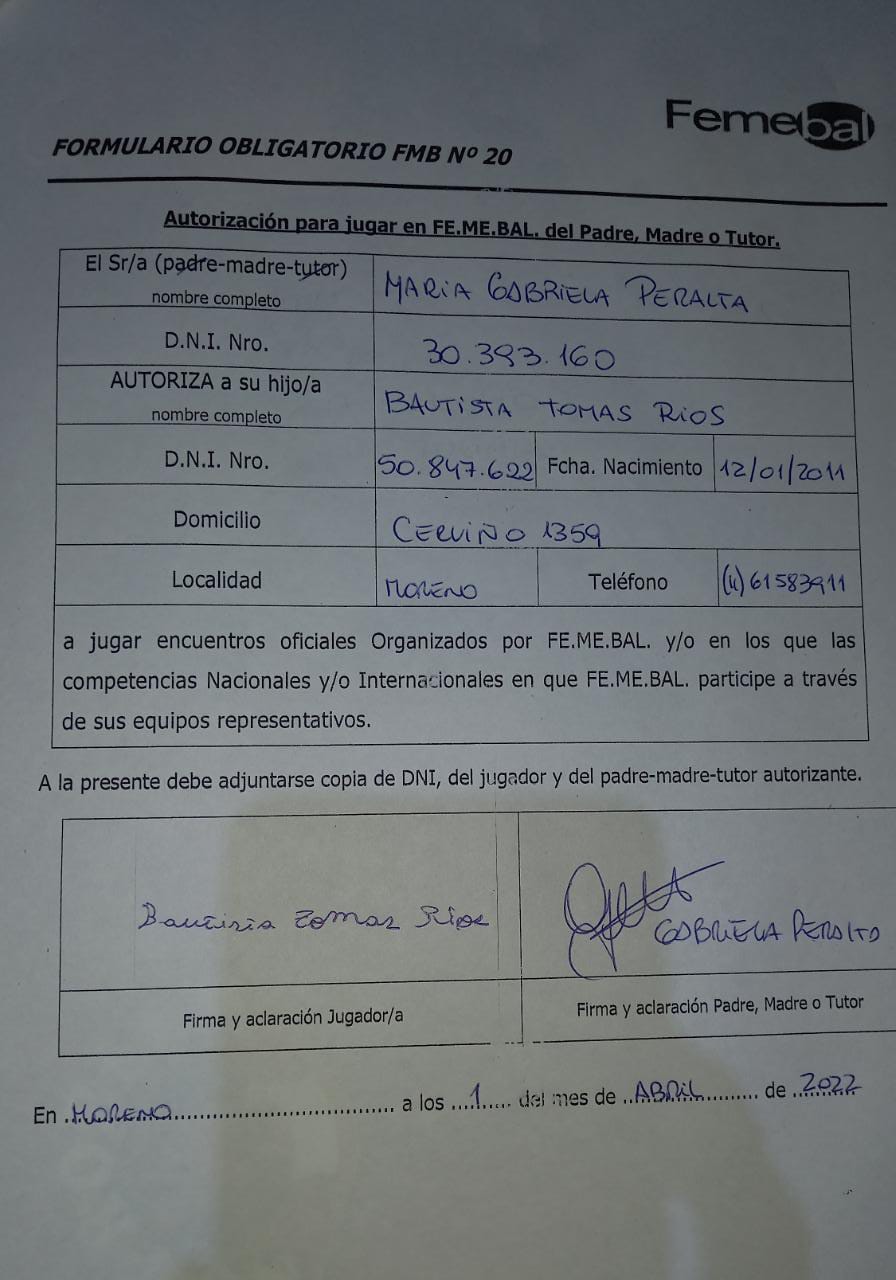 Femebal
FORMULARIO OBLIGATORIO FMB Nº 20
Autorización para jugar en FE.ME.BAL. del Padre, Madre o Tutor.
El Sr/a (padre-madre-tutor)
nombre completo
MARIA GABRIELA PERALTA
D.N.I. Nro.
30.393.160
AUTORIZA a su hijo/a
nombre completo
BAUTISTA TOMAS RIOS
D.N.I. Nro. 50.847.622 Fcha. Nacimiento 12/01/2011
Domicilio CERVIÑO 1359
Localidad MORENO Teléfono (11) 61583911
a jugar encuentros oficiales Organizados por FE.ME.BAL. y/o en los que las
competencias Nacionales y/o Internacionales en que FE.ME.BAL. participe a través
de sus equipos representativos.
A la presente debe adjuntarse copia de DNI, del jugador y del padre-madre-tutor autorizante.
Bautista Tomas Rios
GABRIELA PERALTA
Firma y aclaración Jugador/a
Firma y aclaración Padre, Madre o Tutor
En MORENO a los 1 del mes de ABRIL de 2022